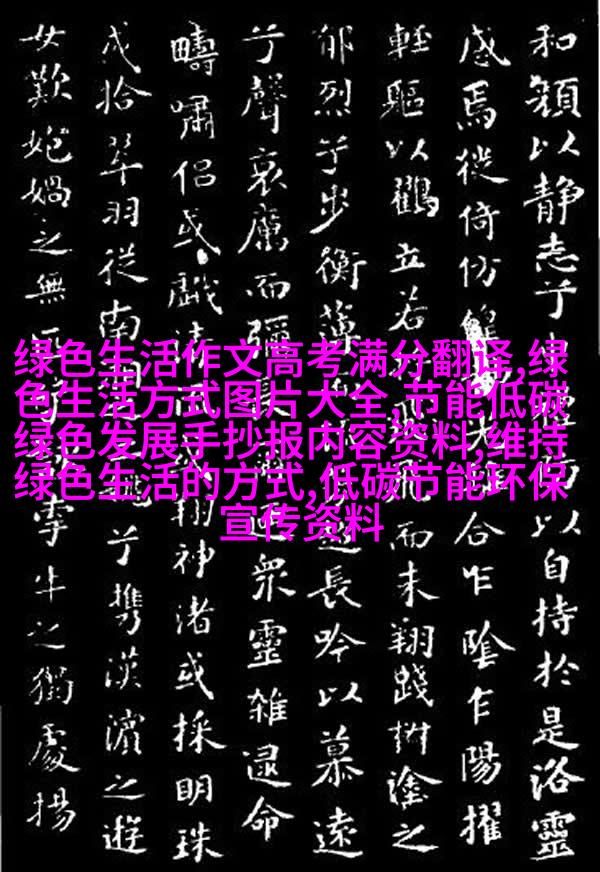 绿色生活作文高考满分翻译,绿
色生活方式图片大全 节能低碳
绿色发展手抄报内容资料,维持
绿色生活的方式,低碳节能环保
宣传资料
和顏以静志兮以自持於是洛靈
感焉徙倚仿合乍陰乍陽擢
輕軀以鶴立若而未翔踐椒塗之
郁烈兮步衡薄長吟以慕遠
兮聲哀厲而彌衆靈雜遝命
疇嘯侣或戲翔神渚或採明珠
或拾翠羽從南兮攜漢濱之遊
女歎匏媧之無牽牛之獨處揚